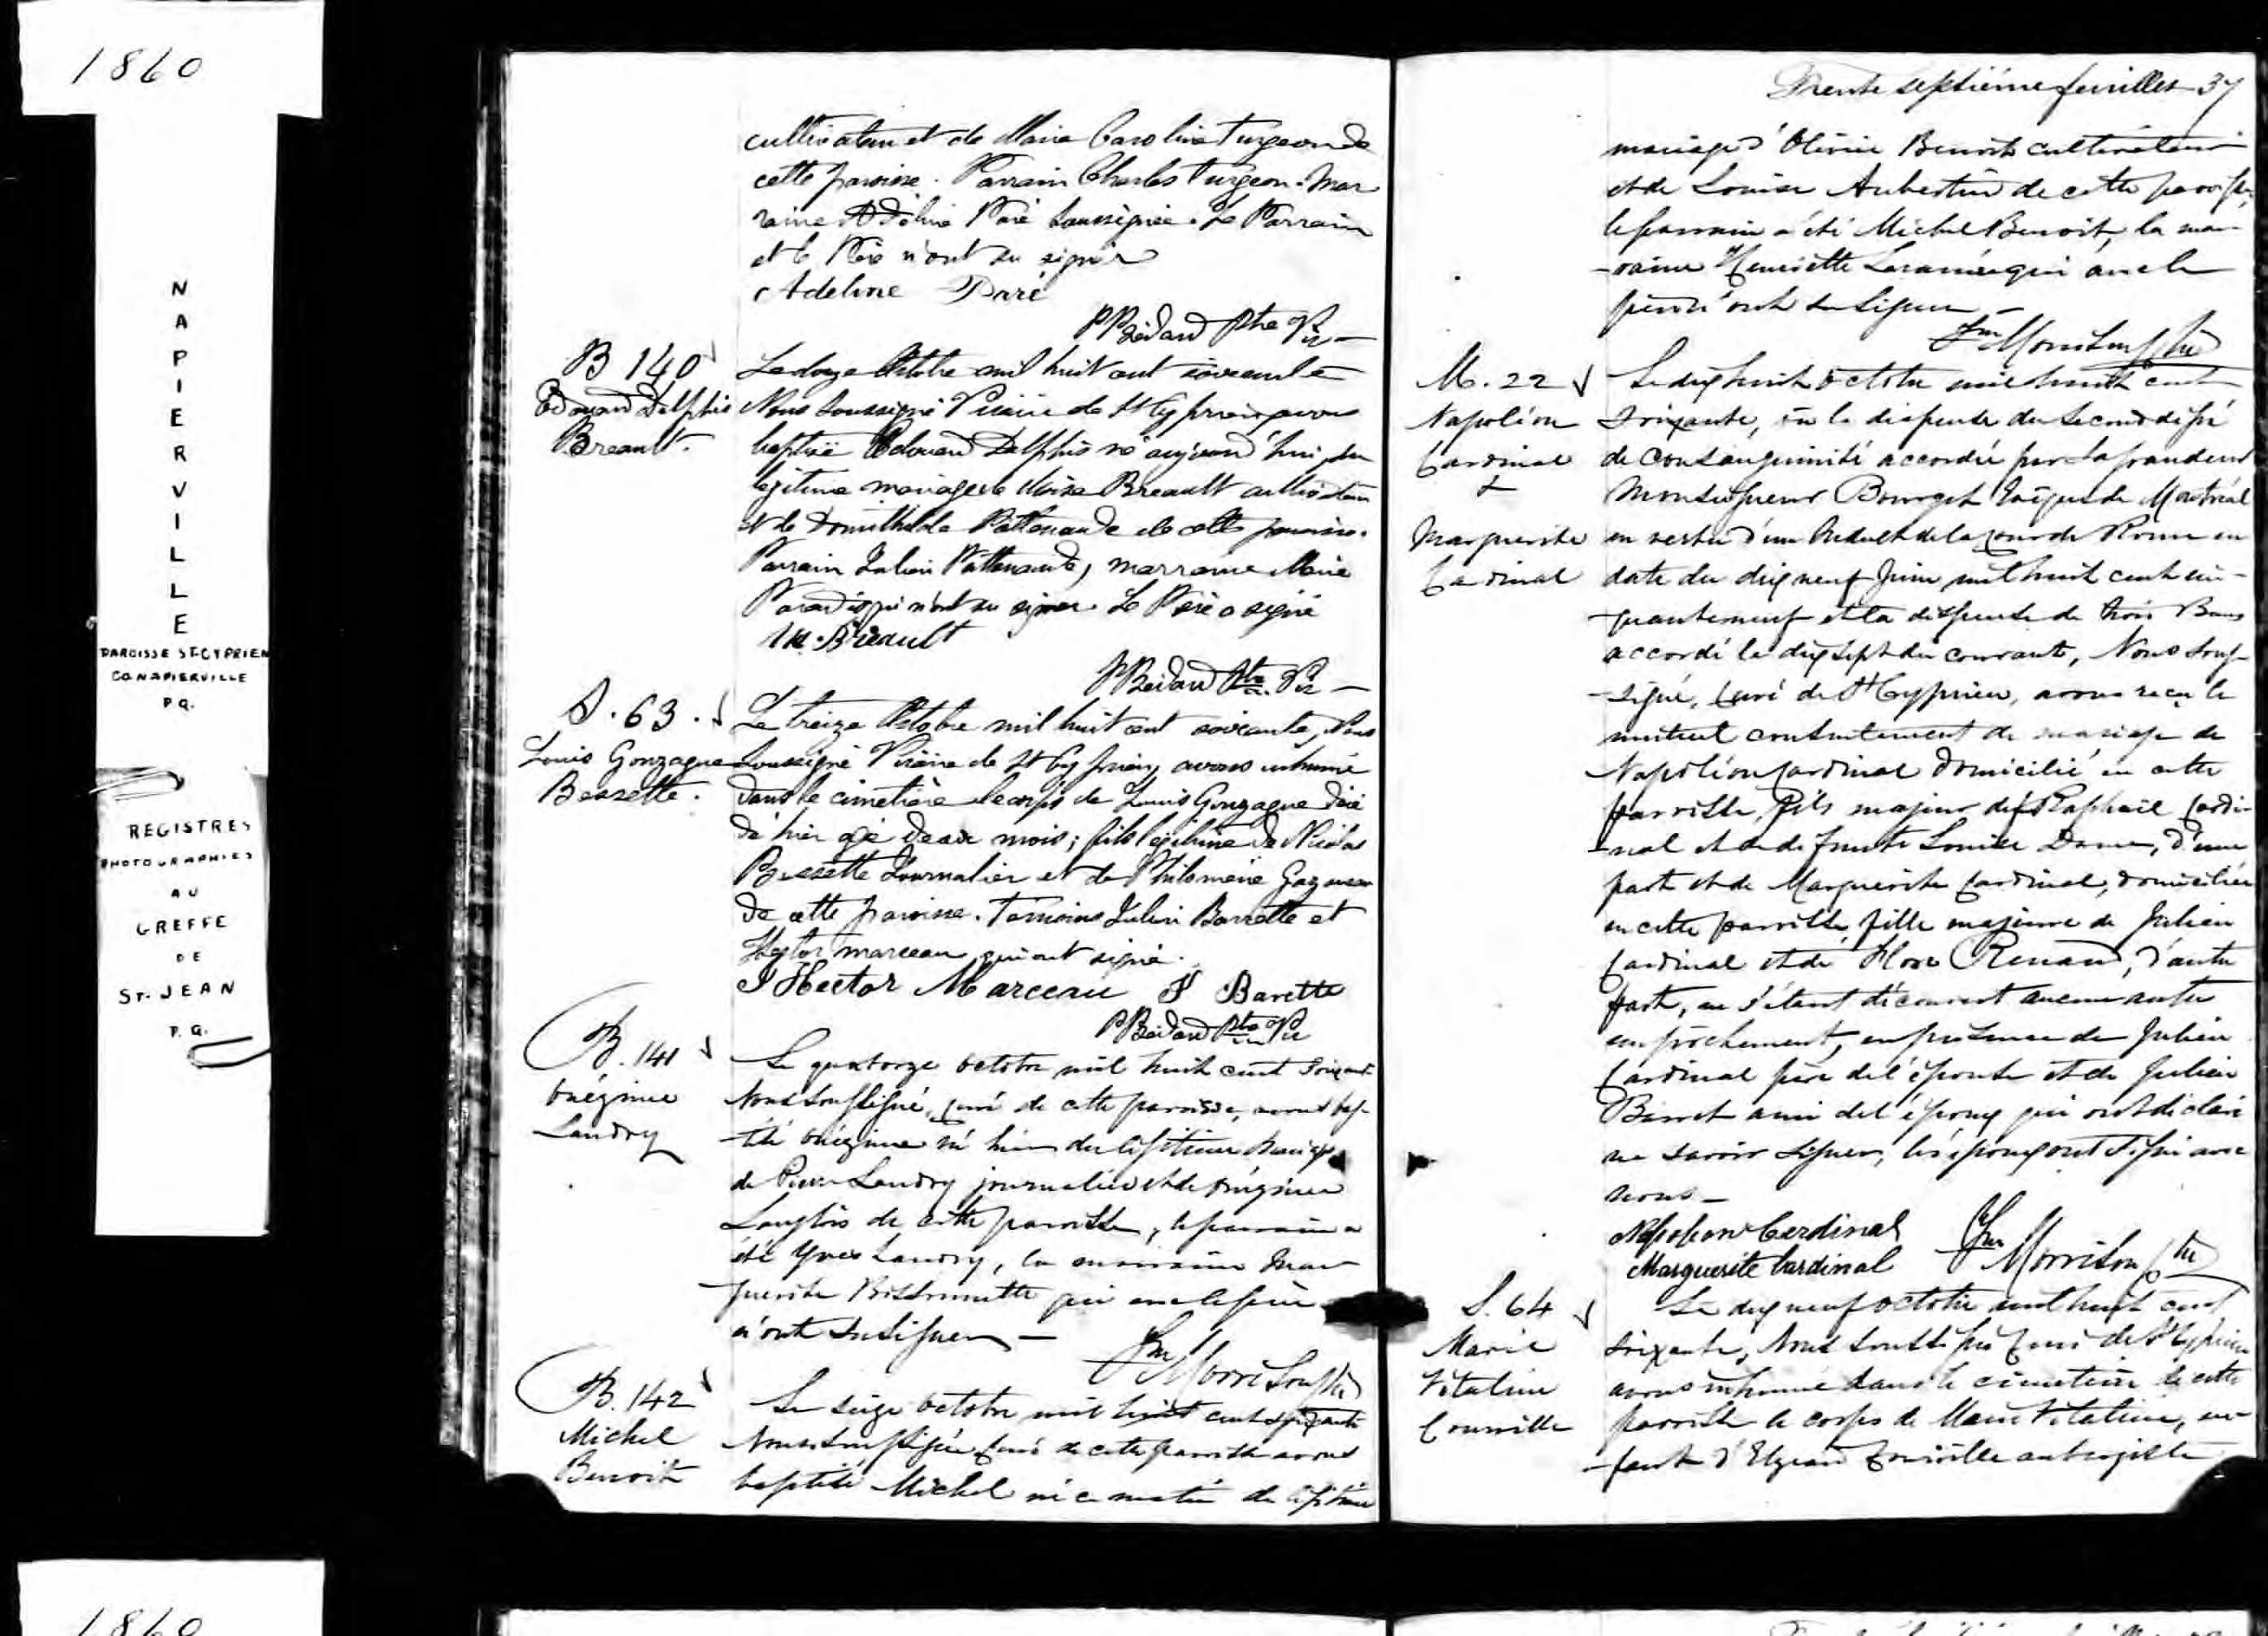 1860
NAPIERVILLE
PAROISSE ST-CYPRIEN
CO NAPIERVILLE
P Q.
REGISTRES
PHOTOGRAPHIES
AU
GREFFE
DE
ST. JEAN
P. Q.
cultivateur et de Marie Caroline Turgeon de
cette paroisse. Parrain Charles Turgeon. Mar
raine Adéline Paré soussignée. Le Parrain
et le Père n'ont su signer
Adeline Paré
PBédard Ptre Vic
B 140
Edouard Delphis
Breault.
Le douze Octobre mil huit cent soixante
Nous soussigné Vicaire de St Cyprien avons
baptisé Edouard Delphis né aujourd'hui du
légitime mariage de Moïse Breault cultivateur
et de Domithilde Pattenaude de cette paroisse.
Parrain Julien Pattenaude, marraine Marie
Paradis qui n'ont su signer. Le Père a signé
M. Breault
PBédard Ptre Vic
S. 63.
Louis Gonzague
Bessette.
Le treize Octobre mil huit cent soixante, Nous
soussigné Vicaire de St Cyprien, avons inhumé
dans le cimetière le corps de Louis Gonzague décé
dé hier agé deux mois; fils légitime de Nicolas
Bessette Journalier et de Philomène
de cette paroisse. Témoins Julien Barrette et
Hector marceau qui ont signé.
J Hector Marceau J Barette
PBédard Ptre Vic
B. 141
Onégime
Landry
Le quatorze octobre mil huit cent soixante
Nous soussigné, curé de cette paroisse, avons bap-
-tisé Onégime né hier du légitime mariage
de Pierre Landry journalier et de
Langlois de cette paroisse, le parrain a
été Yves Landry, la marraine Mar-
-guerite Bissonnette qui avec le père
n'ont su signer
Morrison Ptre
B. 142
Michel
Benoit
Le seize octobre mil huit cent soixante
Nous soussigné curé de cette paroisse avons
baptisé Michel né ce matin du légitime
Trente septième feuillet 37
mariage d'Olivier Benoit cultivateur
et de Louise Aubertin de cette paroisse,
le parrain a été Michel Benoit, la mar-
-raine Henriette Laramée qui avec le
père n'ont su signer
Morrison Ptre
M. 22
Napoléon
Cardinal
&
Marguerite
Cardinal
Le dix huit octobre mil huit cent
soixante, vu la dispense du second degré
de consanguinité accordée par sa grandeur
Monseigneur Bourget Evêque de Montréal
en vertu d'un Indult de la cour de Rome en
date du dix neuf Juin mil huit cent cin-
-quante neuf et la dispense de trois Bans
accordé le dix sept du courant, Nous sous-
-signé, curé de St Cyprien, avons reçu le
mutuel consentement de mariage de
Napoléon Cardinal domicilié en cette
paroisse, fils majeur de Raphaël Cardi-
-nal et de défunte Louise, d'une
part et de Marguerite Cardinal, domiciliée
en cette paroisse fille majeure de Julien
Cardinal et de Flore Renaud, d'autre
part, ne s'étant découvert aucun autre
empêchement, en présence de Julien
Cardinal père de l'épouse et de Julien
ami de l'époux qui ont déclaré
ne savoir signer, les époux ont signé avec
nous
Napoleon Cardinal
Marguerite Cardinal
Morrison Ptre
S. 64
Marie
Vitaline
Courville
Le dix neuf octobre mil huit cent
soixante, Nous soussigné curé de St Cyprien
avons inhumé dans le cimetière de cette
paroisse le corps de Marie Vitaline, en-
-fant d'Elzéar Courville aubergiste
1860